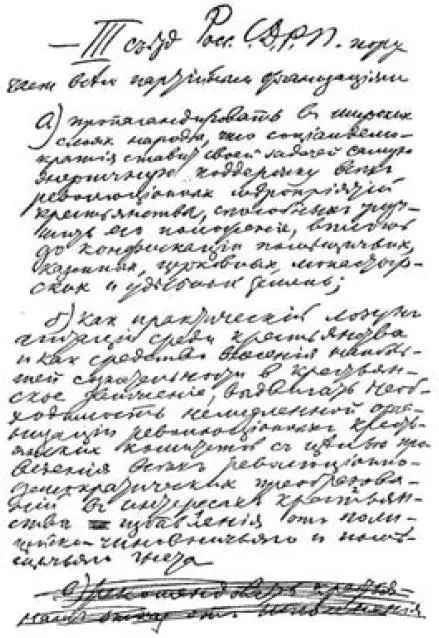 — III съезд Росс. С.Д.Р.П. пору
чает всем партийным организациям
а) пропагандировать в широких
слоях народа, что социалдемо-
кратия ставит своей задачей самую
энергичную поддержку всех
революционных мероприятий
крестьянства, способных улуч-
шить его положение, вплоть
до конфискации помещичьих,
казенных, церковных, монастыр-
ских и удельных земель;
б) как практический лозунг
агитации среди крестьянства
и как средство внесения наиболь-
шей сознательности в крестьян-
ское движение, выдвигать необ-
ходимость немедленной орга-
низации революционных кресть-
янских комитетов с целью про
ведения всех революционно-
демократических преобразова-
ний в интересах крестьян-
ства и избавления его от поли-
цейско-чиновничьего и поме-
щичьего гнета
в) рекомендовать крестья-